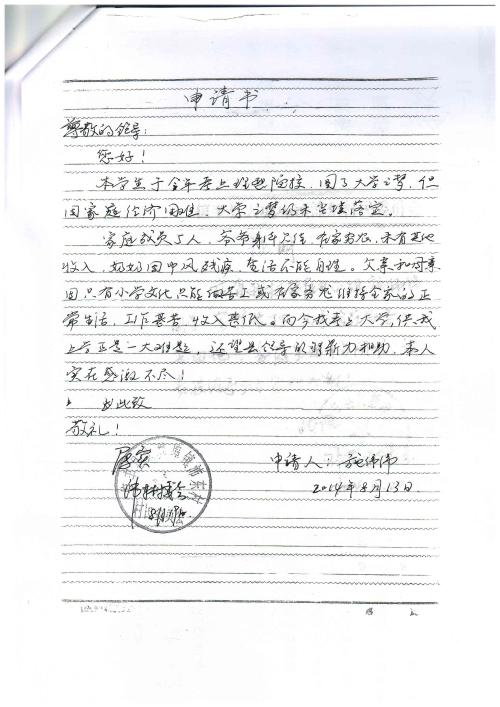 申请书
尊敬的领导：
您好！
本学生于今年考上理想院校，圆了大学之梦，但
因家庭经济困难，大学之梦仍未尘埃落定。
家庭成员5人，爷爷身体不佳，在家务农，未有其他
收入，奶奶因中风残疾，生活不能自理。父亲和母亲
因只有小学文化只能做苦工或在家务农维持全家的正
常生活，工作甚苦，收入甚低。而今我考上大学，供我
上学正是一大难题，还望县领导的鼎力相助，本人
实在感激不尽！
此致
敬礼！
属实
申请人：施伟伟
2014年8月13日